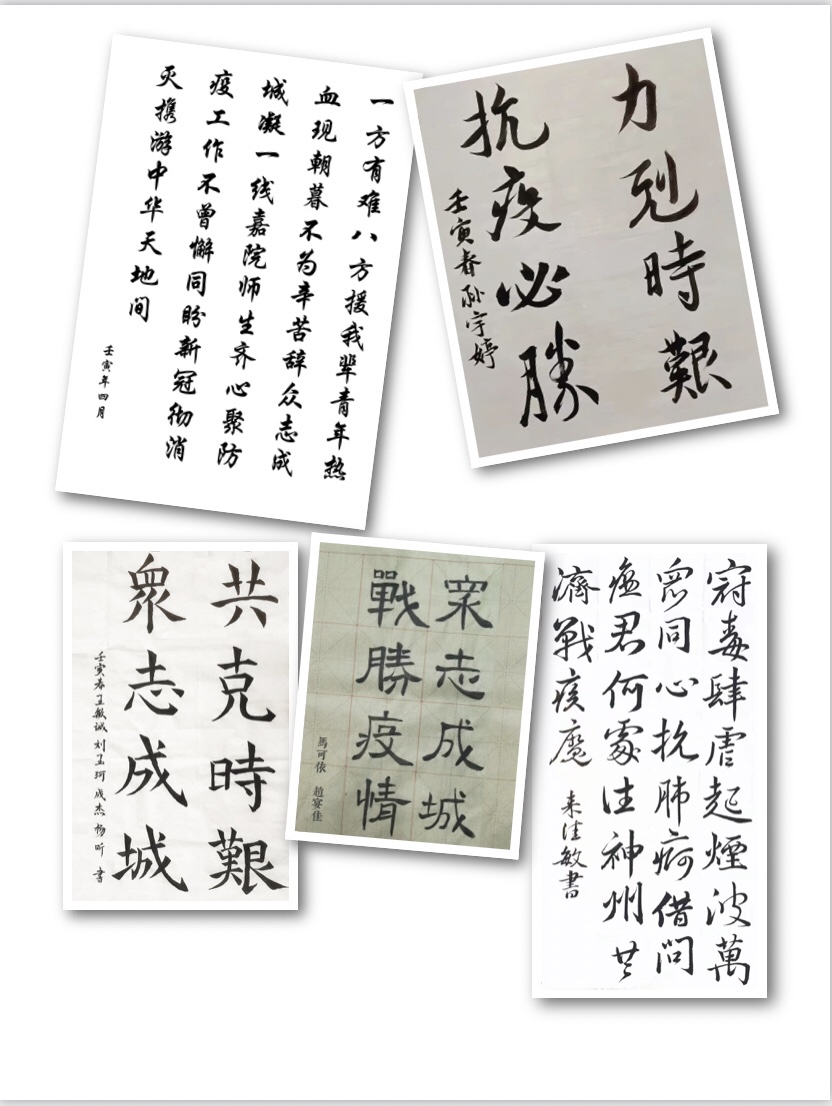 一方有难八方援我辈青年热
血现朝暮不为辛苦辞众志成
城凝一线嘉院师生齐心聚防
疫工作不曾懈同盼新冠彻消
灭携游中华天地间
壬寅年四月
力剋時艱
抗疫必勝
壬寅春孙宇婷
共克時艱
衆志成城
壬寅春王敏诚刘孟珂成杰杨昕書
眾志成城
戰勝疫情
馬可依 趙宴佳
冠毒肆虐起煙波萬
眾同心抗肺疴借問
瘟君何處往神州共
濟戰疾魔
来佳敏書